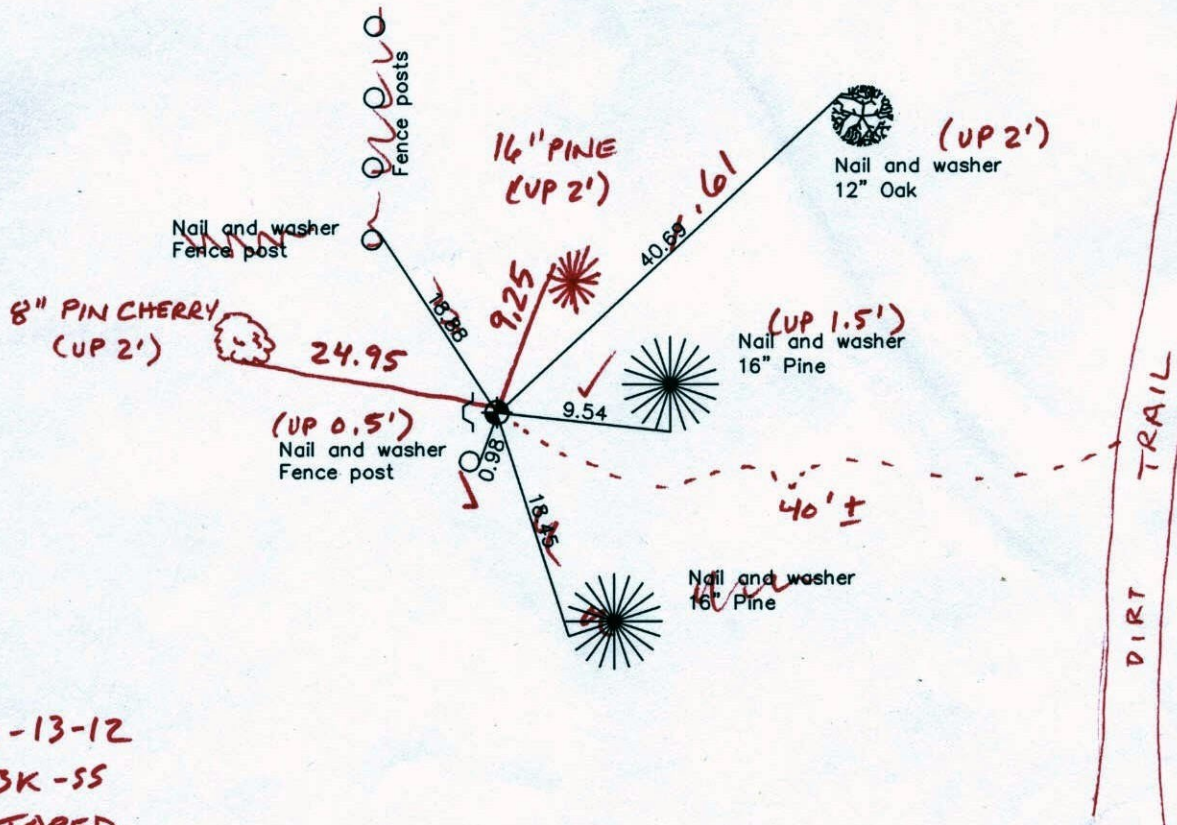 Fence posts
16" PINE
(UP 2')
(UP 2')
Nail and washer
12" Oak
40.69
.61
Nail and washer
Fence post
8" PIN CHERRY
(UP 2')
18.88
9.25
24.95
(UP 1.5')
Nail and washer
16" Pine
9.54
(UP 0.5')
Nail and washer
Fence post
0.98
18.45
40' ±
Nail and washer
16" Pine
DIRT TRAIL
-13-12
-SS
TAPED